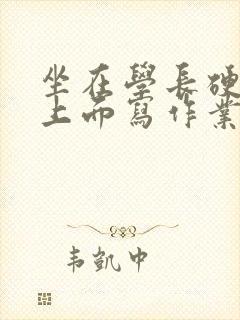 坐在學長硬
上而寫作業
韦凱中